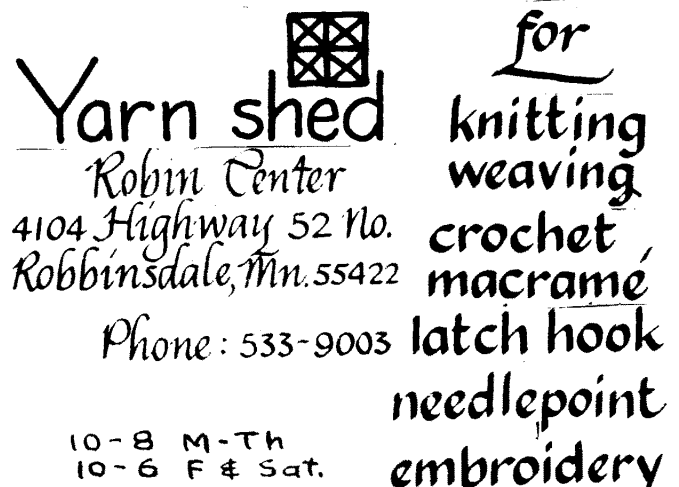 Yarn shed
Robin Center
4104 Highway 52 No.
Robbinsdale, Mn. 55422
Phone: 533-9003
10-8 M-Th
10-6 F & Sat.
for
knitting
weaving
crochet
macramé
latch hook
needlepoint
embroidery